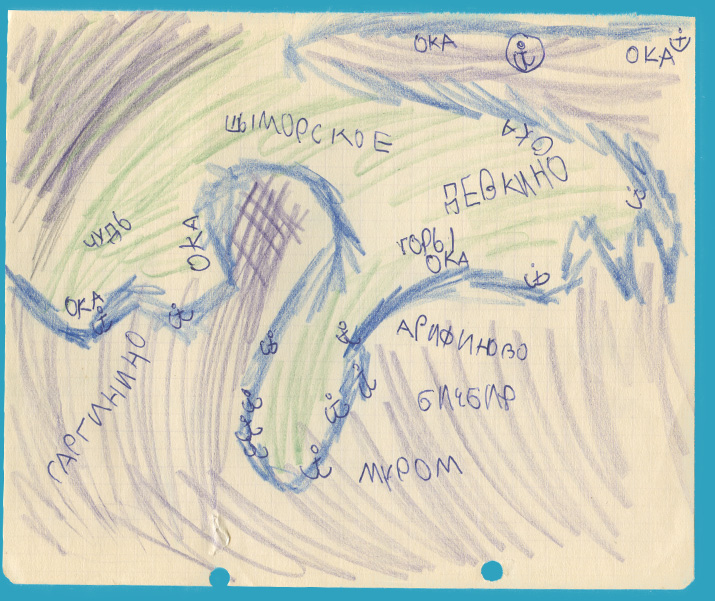 ОКА
ОКА
ШЫМОРСКОЕ
ОКА
ЧУДЬ
ОКА
ГОРЫ
ОКА
ОКА
АРИФИНОВО
ГАРГИНИНО
БИЧБИР
МУРОМ